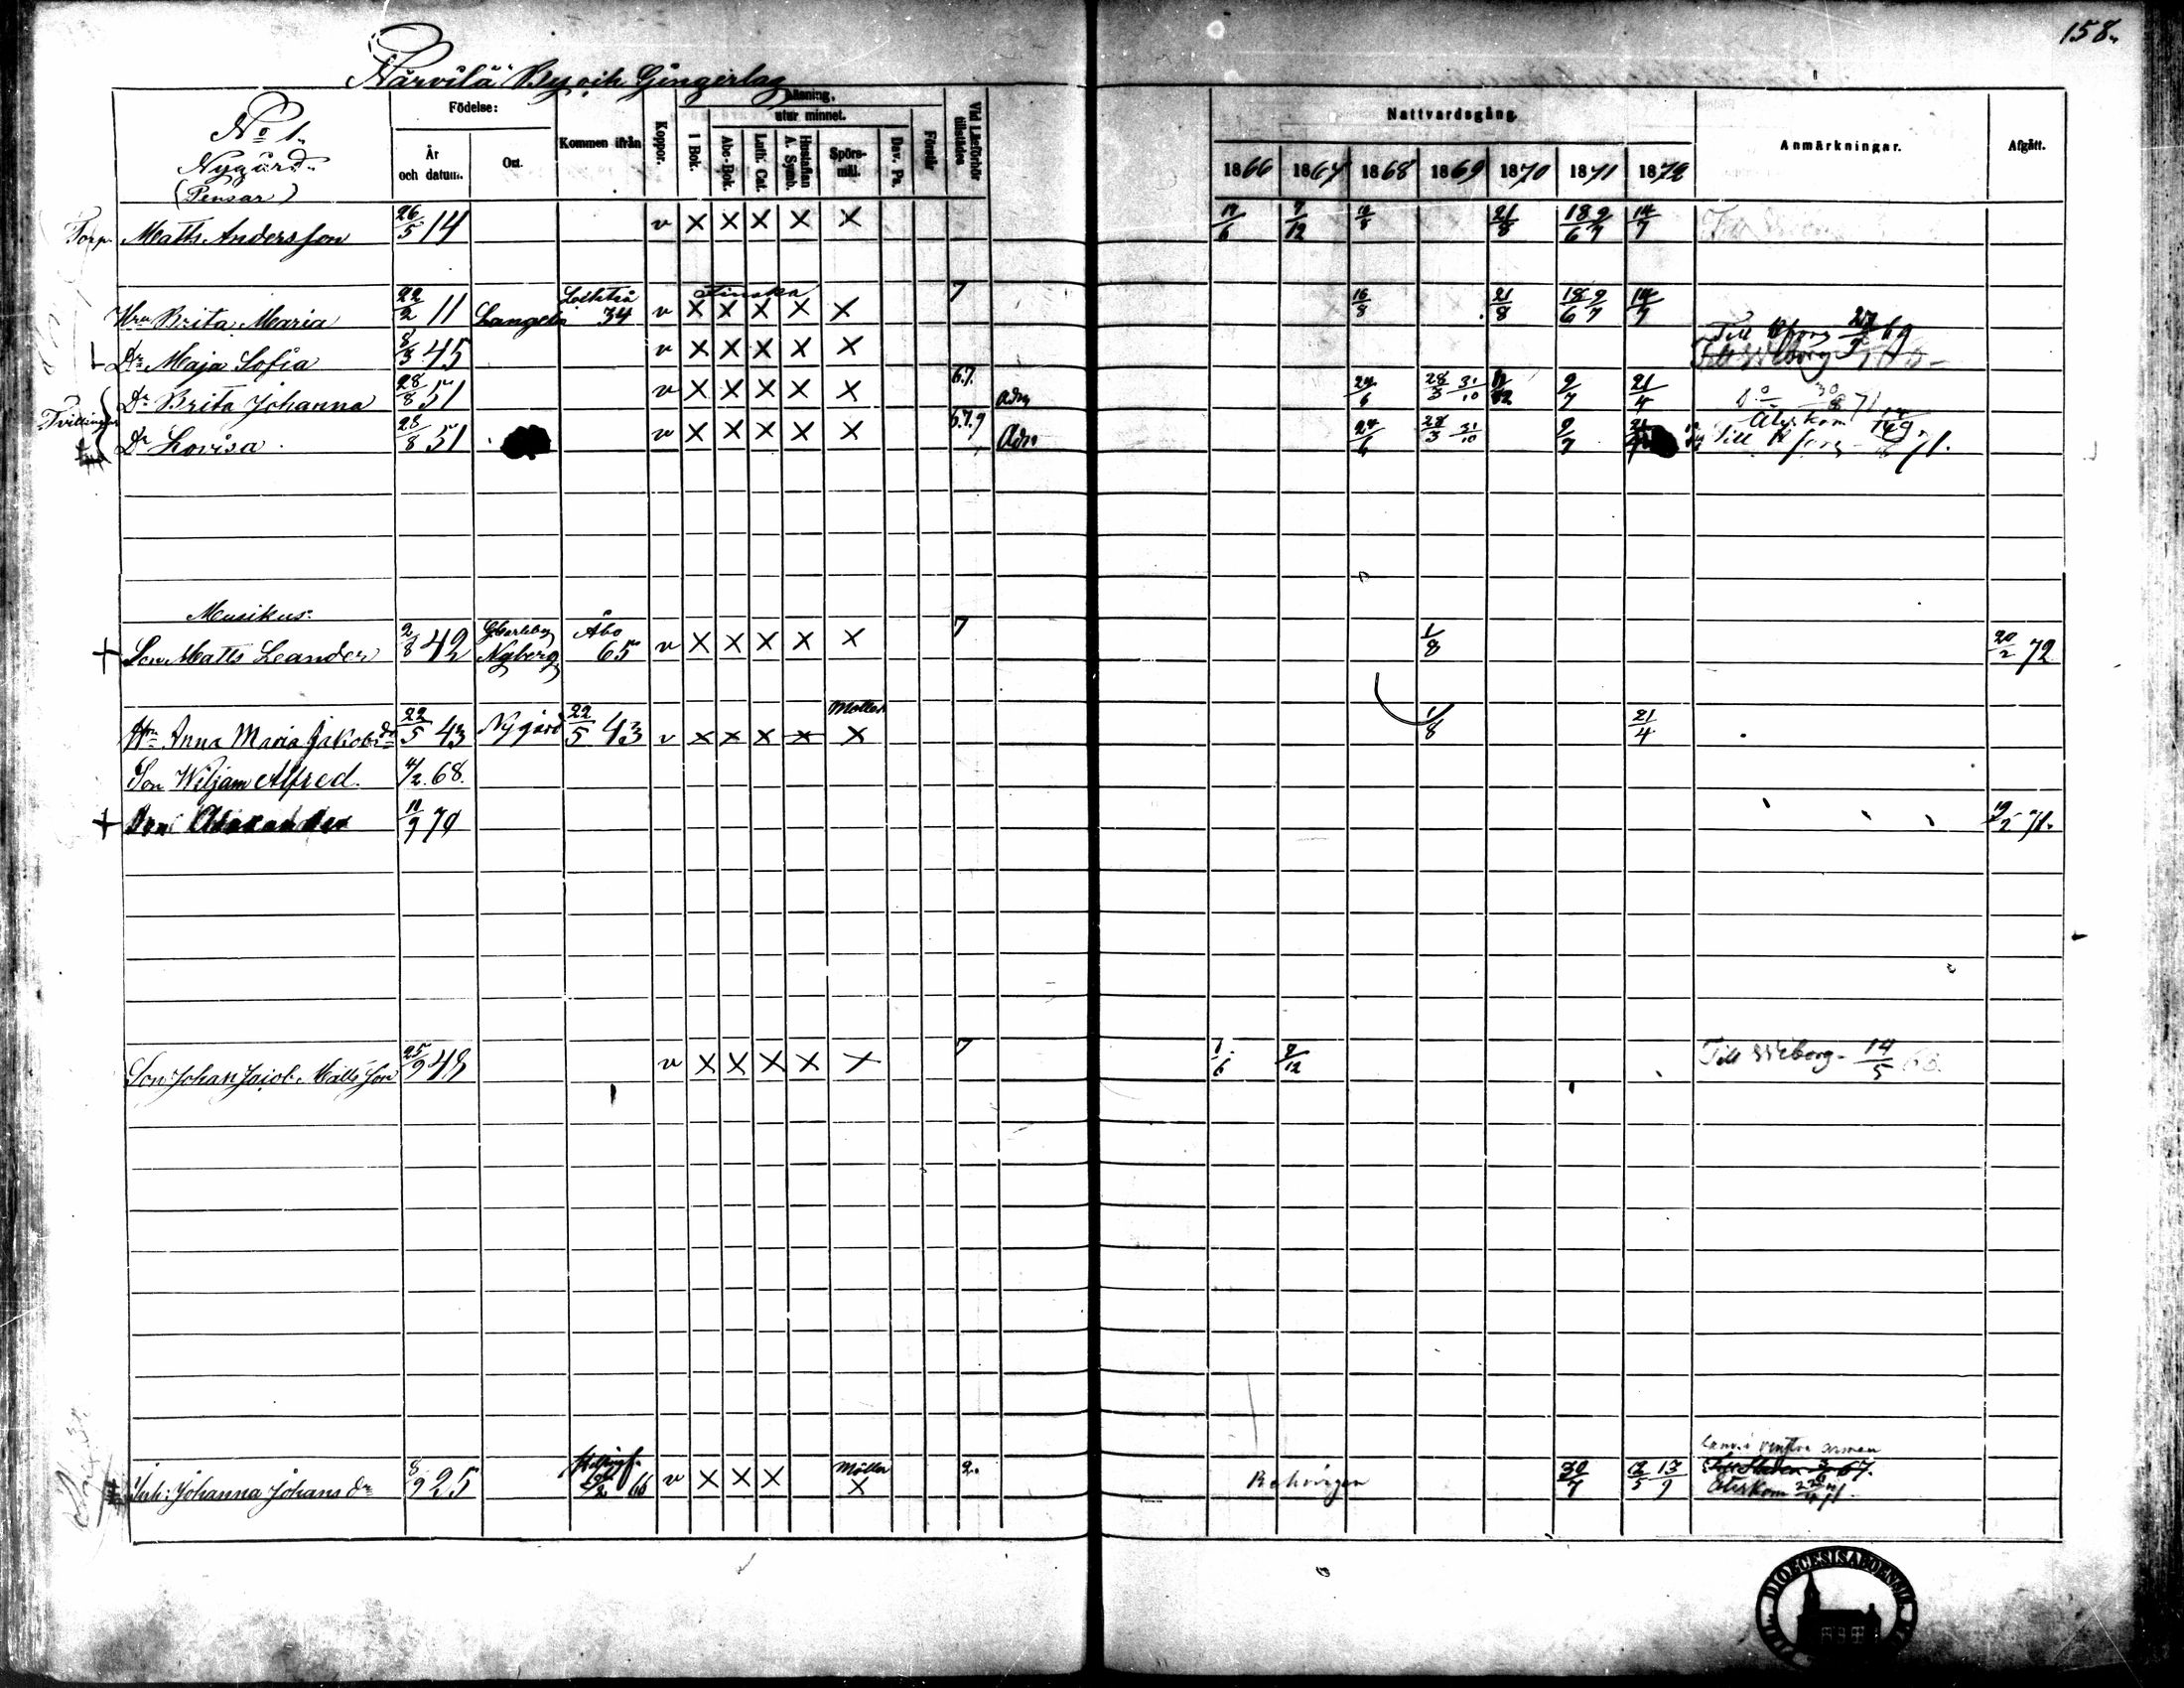 158.
Närvilä By och Gingerlag
No 1.
Nygård
(Pensar)
Födelse:
År och datum.
Ort.
Kommen ifrån
Koppor.
Läsning,
utur minnet.
I Bok.
Abc-Bok.
Luth. Cat.
Hustaflan A. Symb.
Spörs-mål.
Dav. Ps.
Förstår
Vid Läseförhör tillstädes
Nattvardsgång.
1866 1867 1868 1869 1870 1871 1872
Anmärkningar.
Afgått.
Torp. Matts Andersson 26/5 14 v × × × × × 17/6 7/12 21/8 18/6 9/7 14/7
Finska
Hru Brita Maria 22/2 11 Langela Lochteå 34 v × × × × × 7 16/8 21/8 18/6 9/7 14/7
Dr Maja Sofia 8/3 45 v × × × × × Till 69
Till Wiborg
Tvillingar
Dr Brita Johanna 28/8 51 v × × × × × 6.7. Adm 24/6 28/3 31/10 9/7 21/4 Do 30/8 71
Återkom
Dr Lovisa 28/8 51 v × × × × × 6.7.9 Adm 24/6 28/3 31/10 9/7 Till 71.
Musikus:
+ Son Matts Leander 2/8 42 Nyberg Åbo 65 v × × × × × 7 1/8 20/2 72
Hru Anna Maria Jakobsdr 22/5 43 Nygård 22/5 43 v × × × × × Moller 1/8 21/4
Son Wiljam Alfred. 4/2. 68.
+ Son Alexander 11/9 70 19/5 71.
Son Johan Jacob Mattsson 25/9 48 v × × × × × 7 1/6 8/12 Till Wiborg 14/5 68.
Inh: Johanna Johansdr 8/9 25 Helsingf. 66 v × × × Möller × 2. Behörigen 30/7 12/5 13/9
venstra armen
Till Staden 67.
Återkom 71.
DIOECESIS ABOENSIS